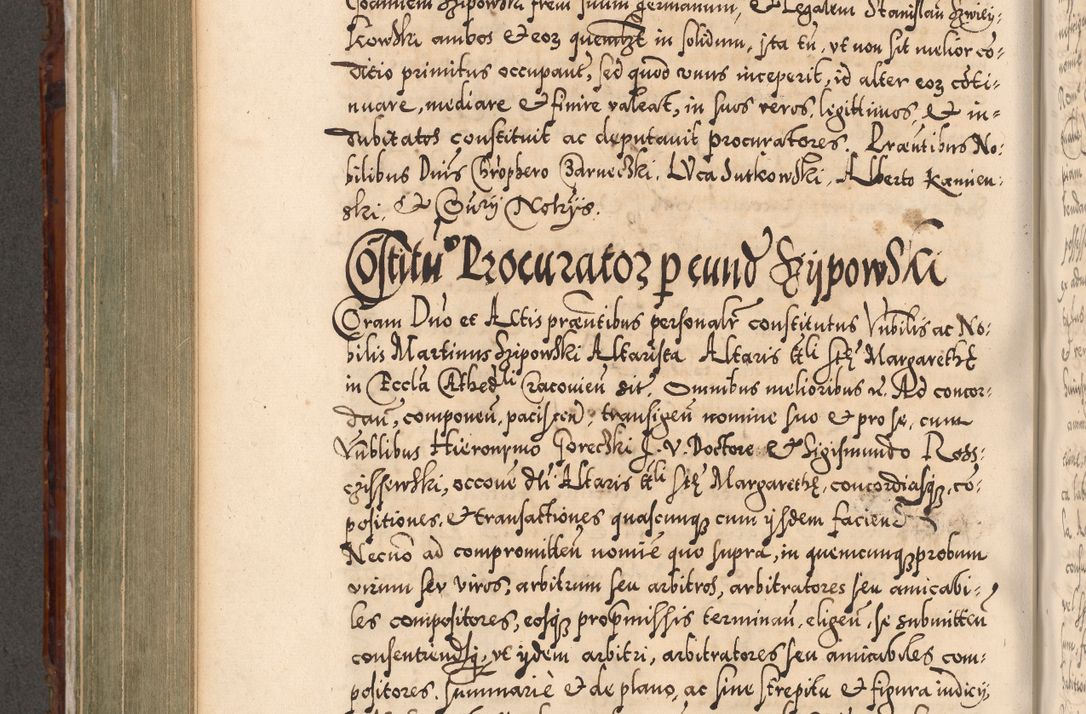 Joannem Szipowski frem suum germanum, & Legalem Stanislau Szwiey-
kowski ambos & eoȝ quemlȝt in solidum, jta tn, vt non sit melior co-
ditio primitus occupant, sed quod vnus inceperit, id alter eoȝ cõti-
nuare, mediare & finire valeat, in suos veros, legittimos, & in-
dubitatos constituit ac deputauit procuratores. Præntibus No-
bilibus Dnis Chrophero Czarnecski, Luca Sutkowski, Alberto Kamien-
ski, & Notrijs.
Cõstitũ Procuratoȝ p eund Szÿpowski
Coram Dno et Actis præntibus personalr constitutus Vnbilis ac No-
bilis Martinus Szipowski Altarista Altaris ttli Stę Margarethę
in Eccla Cathedli Cracouien sit, Omnibus melioribus &. Ad concor-
dan, componen, paciscend, transigen nomine suo & pro se, cum
Vnblibus Hieronymo Gorecski J. V. Doctore & Sigismundo Ross-
czissewski, occõne dti Altaris ttli Stę Margarethę, concordiasqȝ, cõ-
positiones, & transactiones quascunqȝ cum ijsdem faciend
Necnõ ad compromitten nomie quo supra, in quemcunqȝ probum
virum seu viros, arbitrum seu arbitros, arbitratores seu amicabi-
les compositores, eosqȝ præmissis terminan, eligen, se submitten
consentiendqȝ, vt ijdem arbitri, arbitratores seu amicabiles com-
positores, summariè & de plano, ac sine strepitu & figura indicij